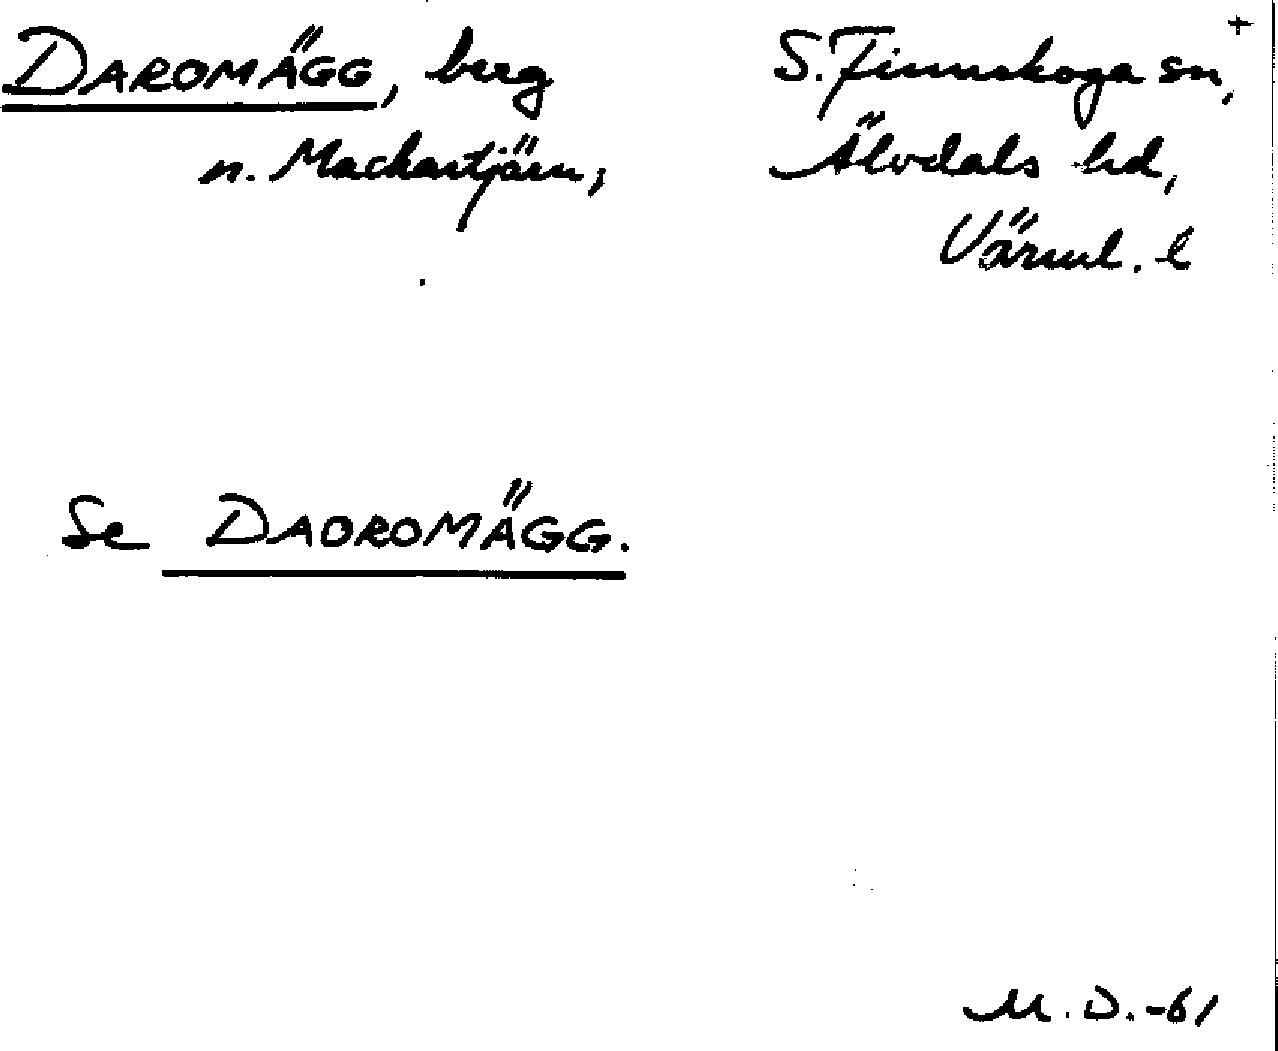 DAROMÄGG, berg
n. Mackartjärn,
S. Finnskoga sn,
Älvdals hd,
Värml. l
Se DAOROMÄGG.
M.D.-61